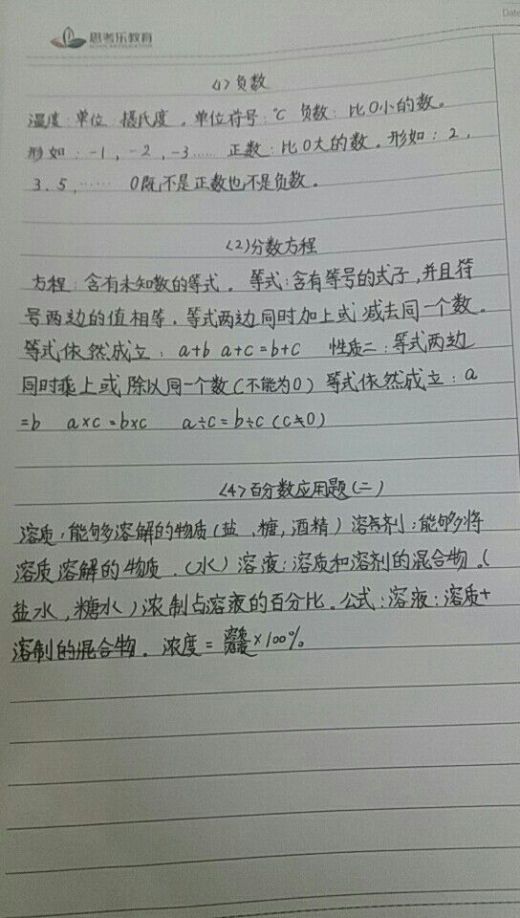 思考乐教育
Date
<1>负数
温度:单位:摄氏度。单位符号:℃ 负数:比0小的数。
形如:-1,-2,-3…… 正数:比0大的数。形如:2,
3.5,…… 0既不是正数也不是负数。
<2>分数方程
方程:含有未知数的等式。等式:含有等号的式子,并且符
号两边的值相等,等式两边同时加上或减去同一个数。
等式依然成立:a+b a+c=b+c 性质二:等式两边
同时乘上或除以同一个数(不能为0)等式依然成立:a
=b a×c=b×c a÷c=b÷c(c≠0)
<4>百分数应用题(二)
溶质:能够溶解的物质(盐,糖,酒精)溶剂:能够将
溶质溶解的物质.(水)溶液:溶质和溶剂的混合物。(
盐水,糖水)浓制占溶液的百分比。公式:溶液:溶质+
溶制的混合物。浓度= ×100%。